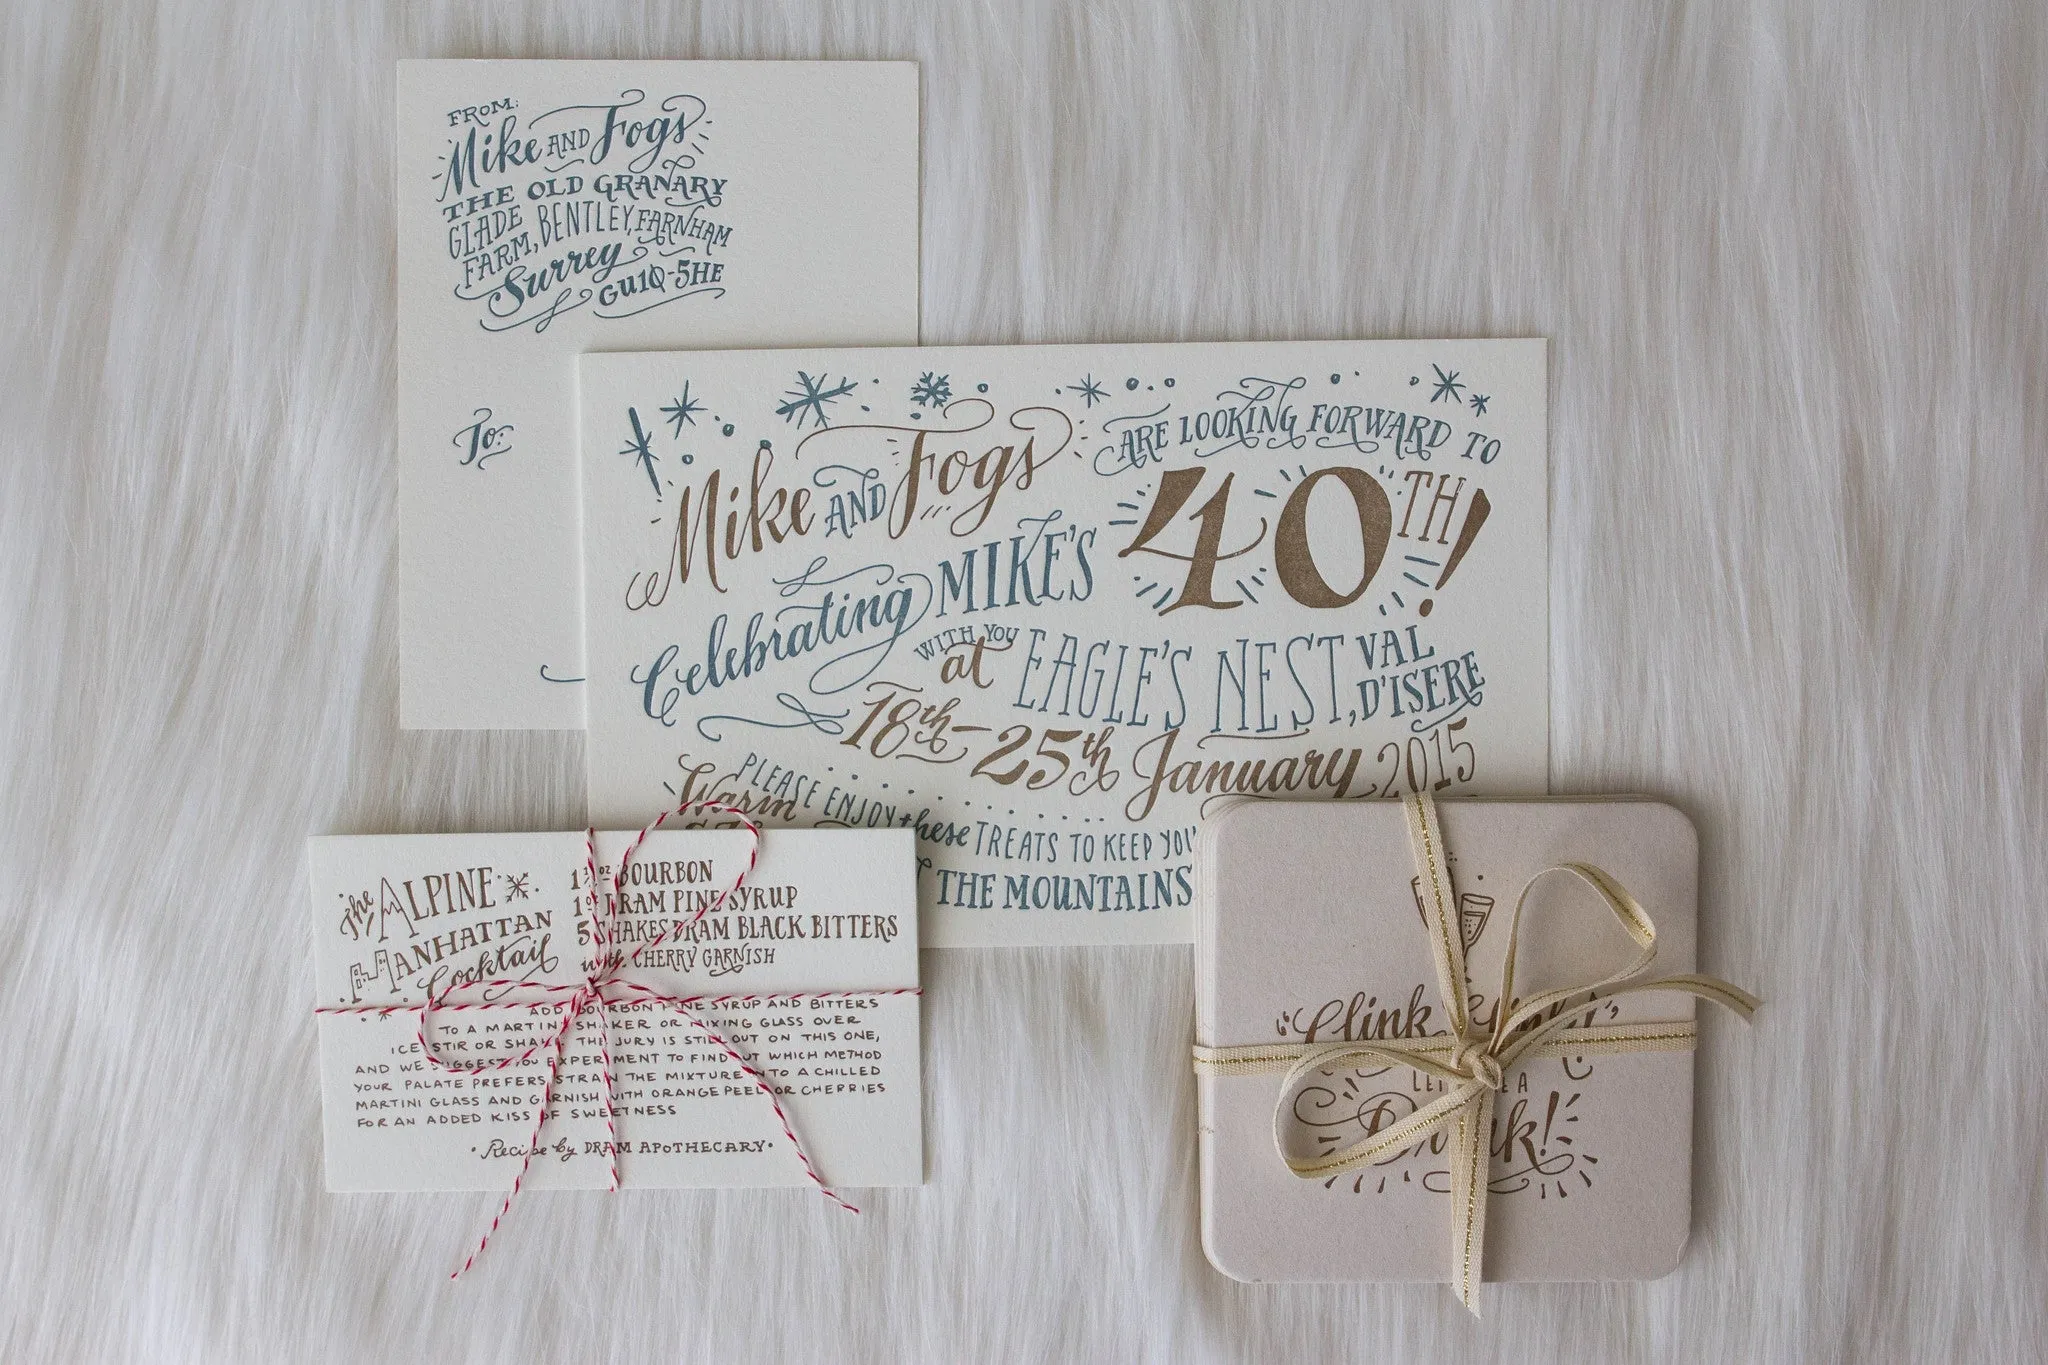 FROM:
Mike AND Fogs
THE OLD GRANARY
GLADE BENTLEY, FARNHAM
FARM,
Surrey
GU10-5HE
To:
Mike AND Fogs ARE LOOKING FORWARD TO
Celebrating MIKE'S 40TH!
WITH YOU
at EAGLE'S NEST, VAL D'ISERE
18th - 25th January 2015
PLEASE ENJOY these TREATS TO KEEP YOU
Warm
THE MOUNTAINS
The ALPINE
MANHATTAN
Cocktail
1 BOURBON
1 oz DRAM PINE SYRUP
5 SHAKES DRAM BLACK BITTERS
with CHERRY GARNISH
ADD BOURBON PINE SYRUP AND BITTERS
TO A MARTINI SHAKER OR MIXING GLASS OVER
ICE STIR OR SHAKE. THE JURY IS STILL OUT ON THIS ONE,
AND WE SUGGEST YOU EXPERIMENT TO FIND OUT WHICH METHOD
YOUR PALATE PREFERS STRAIN THE MIXTURE INTO A CHILLED
MARTINI GLASS AND GARNISH WITH ORANGE PEEL OR CHERRIES
FOR AN ADDED KISS OF SWEETNESS
• Recipe by DRAM APOTHECARY •
"Clink
A
Drink!